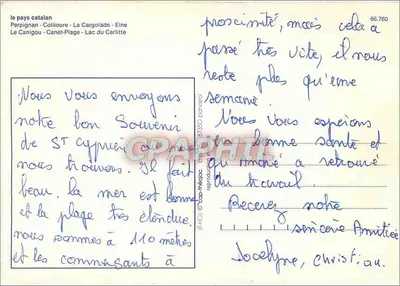 le pays catalan
Perpignan - Collioure - La Cargolade - Elne
Le Canigou - Canet-Plage - Lac du Carlitte
66.760
Nous vous envoyons
notre bon Souvenir
de St Cyprien où nous
nous trouvons. Il fait
beau. la mer est bonne
et la plage très étendue.
nous sommes à 110 mètres
et les commersants à
proscimité, mais cela a
passé très vite, il nous
reste plus qu'une
semaine.
Nous vous espérons
en bonne santé et
qu'André a retrouvé
du travail.
Recevez notre
sincère Amitiée
Jocelyne, Christian.
CPAPHIL.com